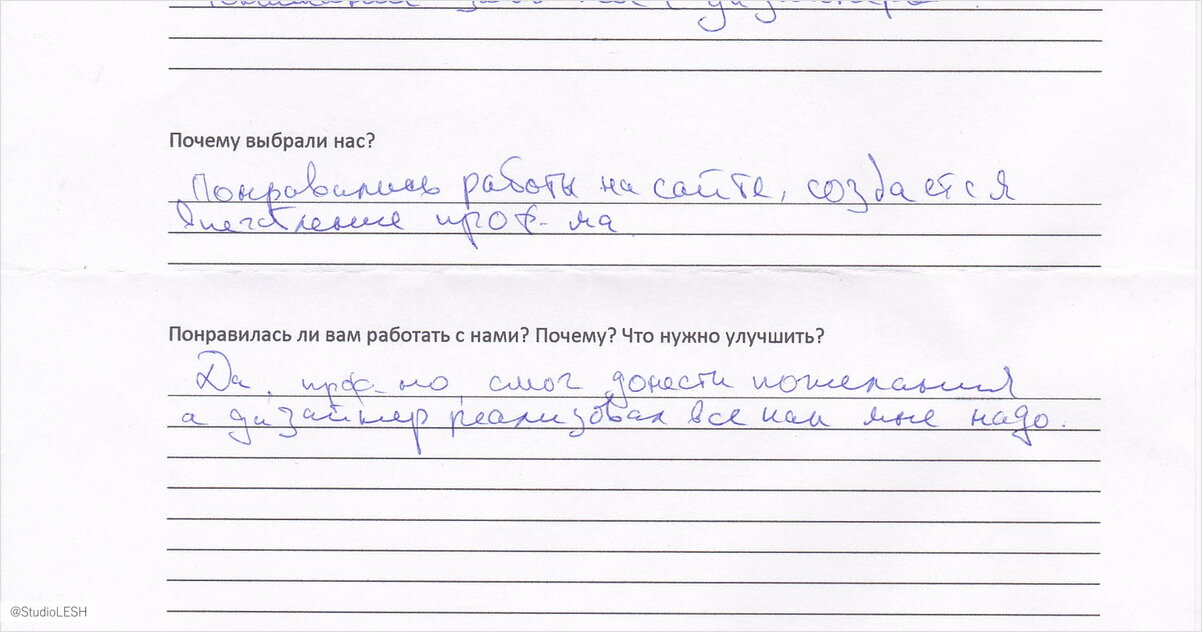 Почему выбрали нас?
Понравились работы на сайте, создается
впечатление проф-ма
Понравилась ли вам работать с нами? Почему? Что нужно улучшить?
Да, проф-но, смог донести пожелания
а дизайнер реализовал все как мне надо.
@StudioLESH